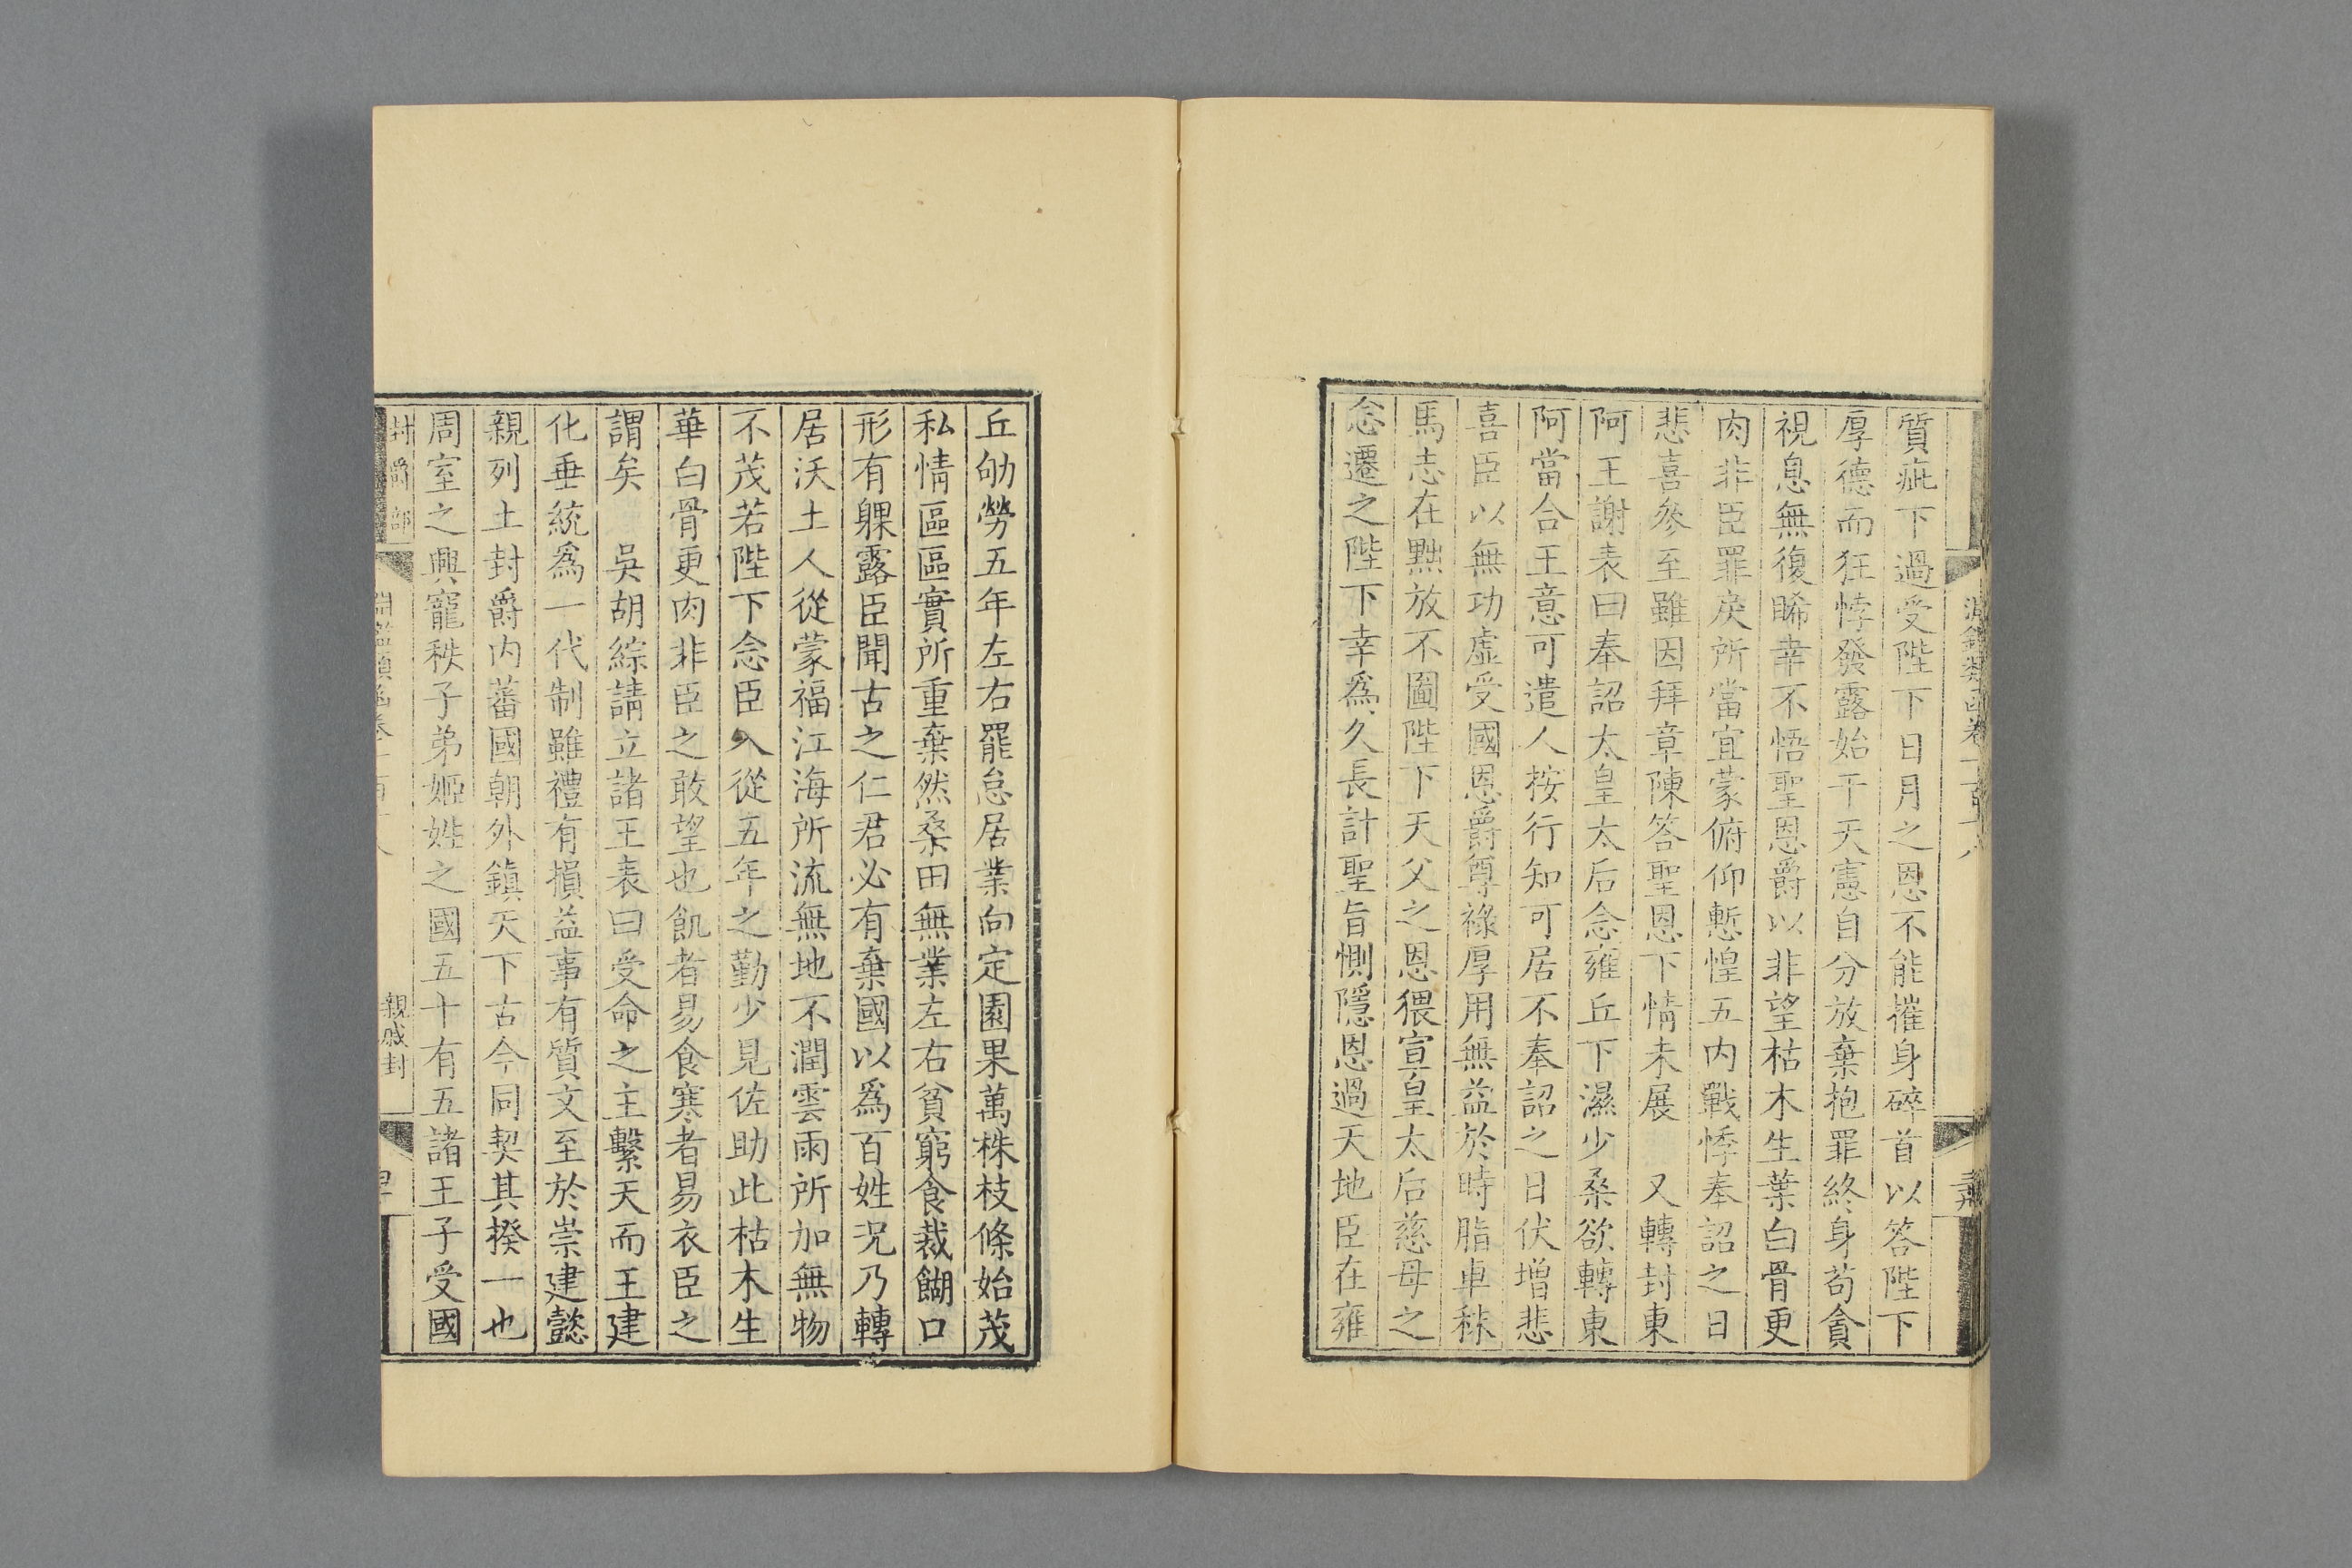 質疵下過受陛下日月之恩不能摧身碎首以答陛下
厚德而狂悖發露始干天憲自分放棄抱罪終身苟貪
視息無復睎幸不悟聖恩爵以非望枯木生葉白骨更
肉非臣罪戾所當宜蒙俯仰慙惶五内戰悸奉詔之日
悲喜參至雖因拜章陳答聖恩下情未展　又轉封東
阿王謝表曰奉詔太皇太后念雍丘下濕少桑欲轉東
阿當合王意可遣人按行知可居不奉詔之日伏增悲
喜臣以無功虛受國恩爵尊祿厚用無益於時脂車秣
馬志在黜放不圖陛下天父之恩猥宣皇太后慈母之
念遷之陛下幸爲久長計聖旨惻隱恩過天地臣在雍
丘劬勞五年左右罷怠居業向定園果萬株枝條始茂
私情區區實所重棄然桑田無業左右貧窮食裁餬口
形有躶露臣聞古之仁君必有棄國以爲百姓況乃轉
居沃土人從蒙福江海所流無地不潤雲雨所加無物
不茂若陛下念臣入從五年之勤少見佐助此枯木生
華白骨更肉非臣之敢望也飢者易食寒者易衣臣之
謂矣　吳胡綜請立諸王表曰受命之主繫天而王建
化垂統爲一代制雖禮有損益事有質文至於崇建懿
親列土封爵内蕃國朝外鎮天下古今同契其揆一也
周室之興寵秩子弟姬姓之國五十有五諸王子受國
封爵部
親戚封